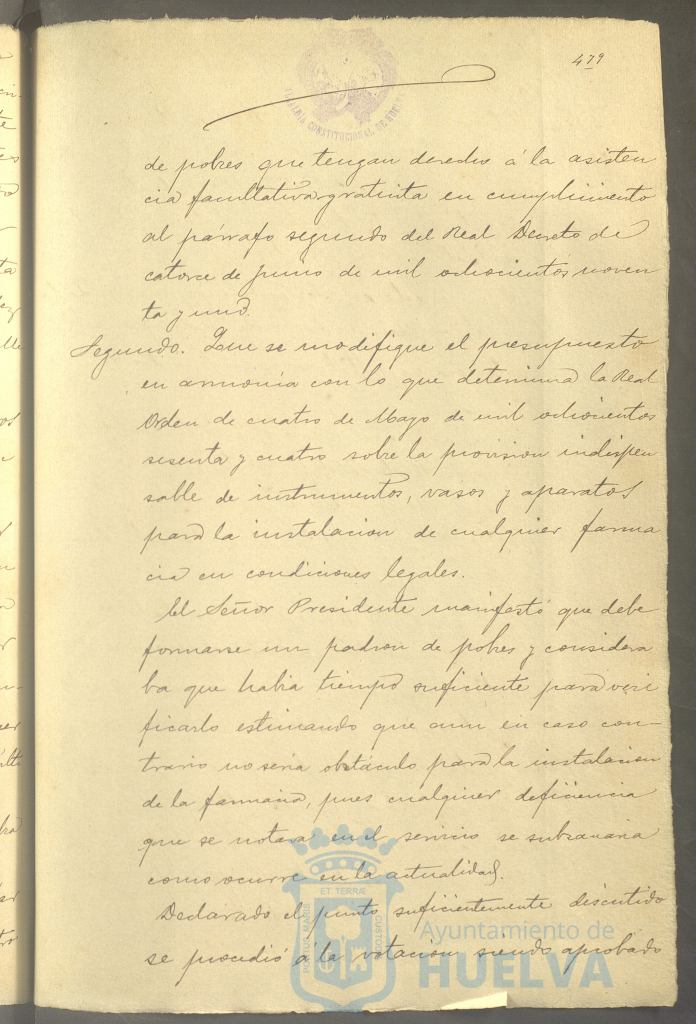 479
ALCALDIA CONSTITUCIONAL DE HUELVA
de pobres que tengan derecho á la asisten
cia facultativa gratuita en cumplimiento
al párrafo segundo del Real Decreto de
catorce de Junio de mil ochocientos noven
ta y uno.
Segundo. Que se modifique el presupuesto
en armonia con lo que determina la Real
Orden de cuatro de Mayo de mil ochocientos
sesenta y cuatro sobre la provision indispen
sable de instrumentos, vasos y aparatos
para la instalacion de cualquier farma
cia en condiciones legales.
El Señor Presidente manifestó que debe
formarse un padron de pobres y considera
ba que habia tiempo suficiente para veri
ficarlo estimando que aun en caso con-
trario no seria obstáculo para la instalacion
de la farmacia, pues cualquier deficiencia
que se notara en el servicio se subsanaria
como ocurre en la actualidad.
Declarado el punto suficientemente discutido
se procedió á la votacion siendo aprobado
PORTUS MARIS ET TERRÆ CUSTODIA
Ayuntamiento de
HUELVA